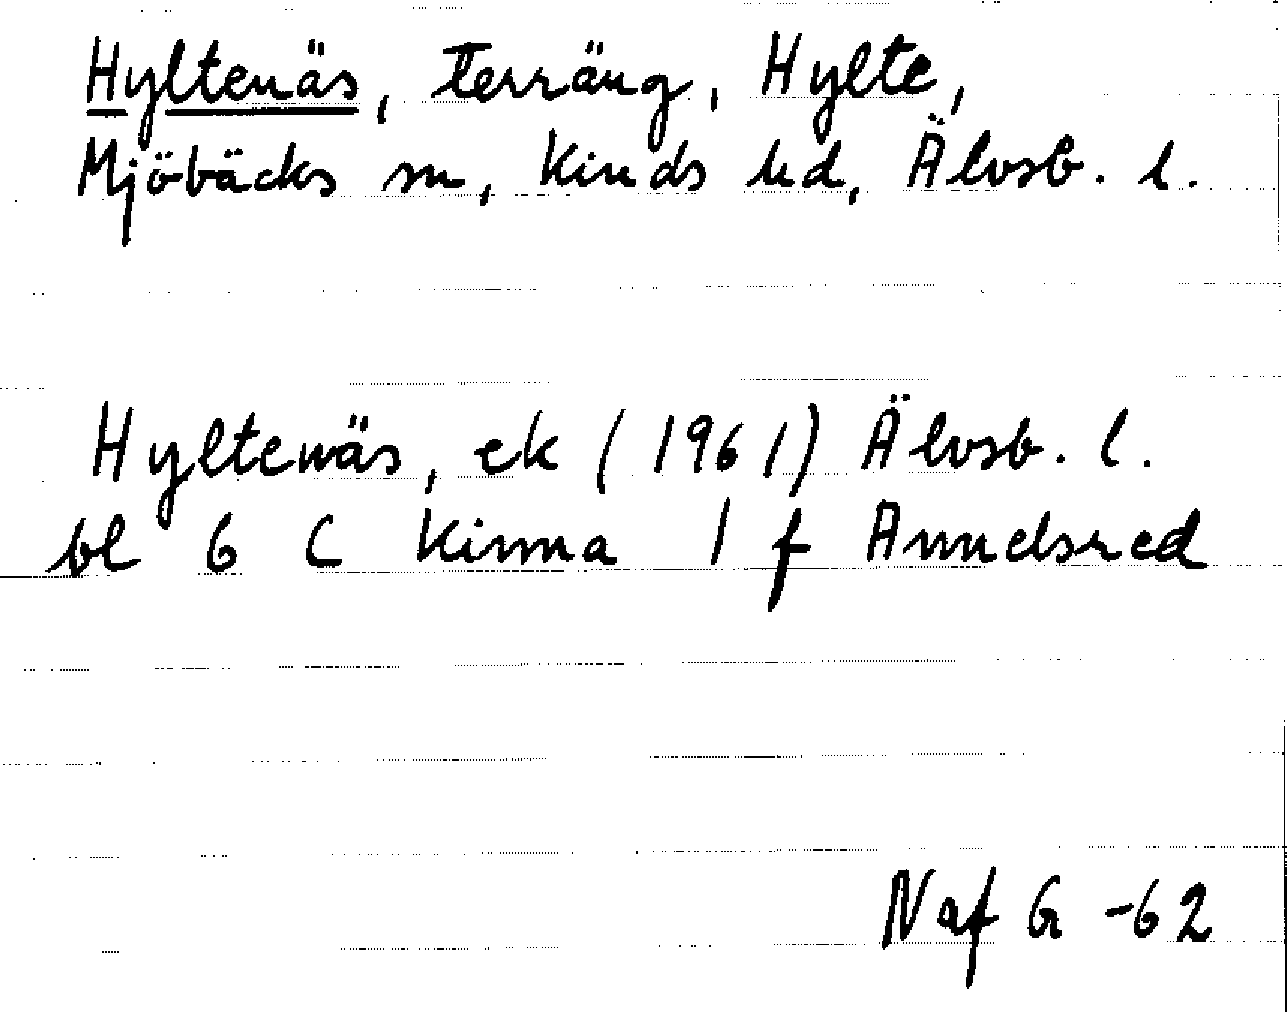 Hyltenäs, terräng, Hylte,
Mjöbäcks sn, Kinds hd, Älvsb. l.
Hyltenäs, ek (1961) Älvsb. l.
bl 6 C Kinna 1 f Annelsred
Naf G -62